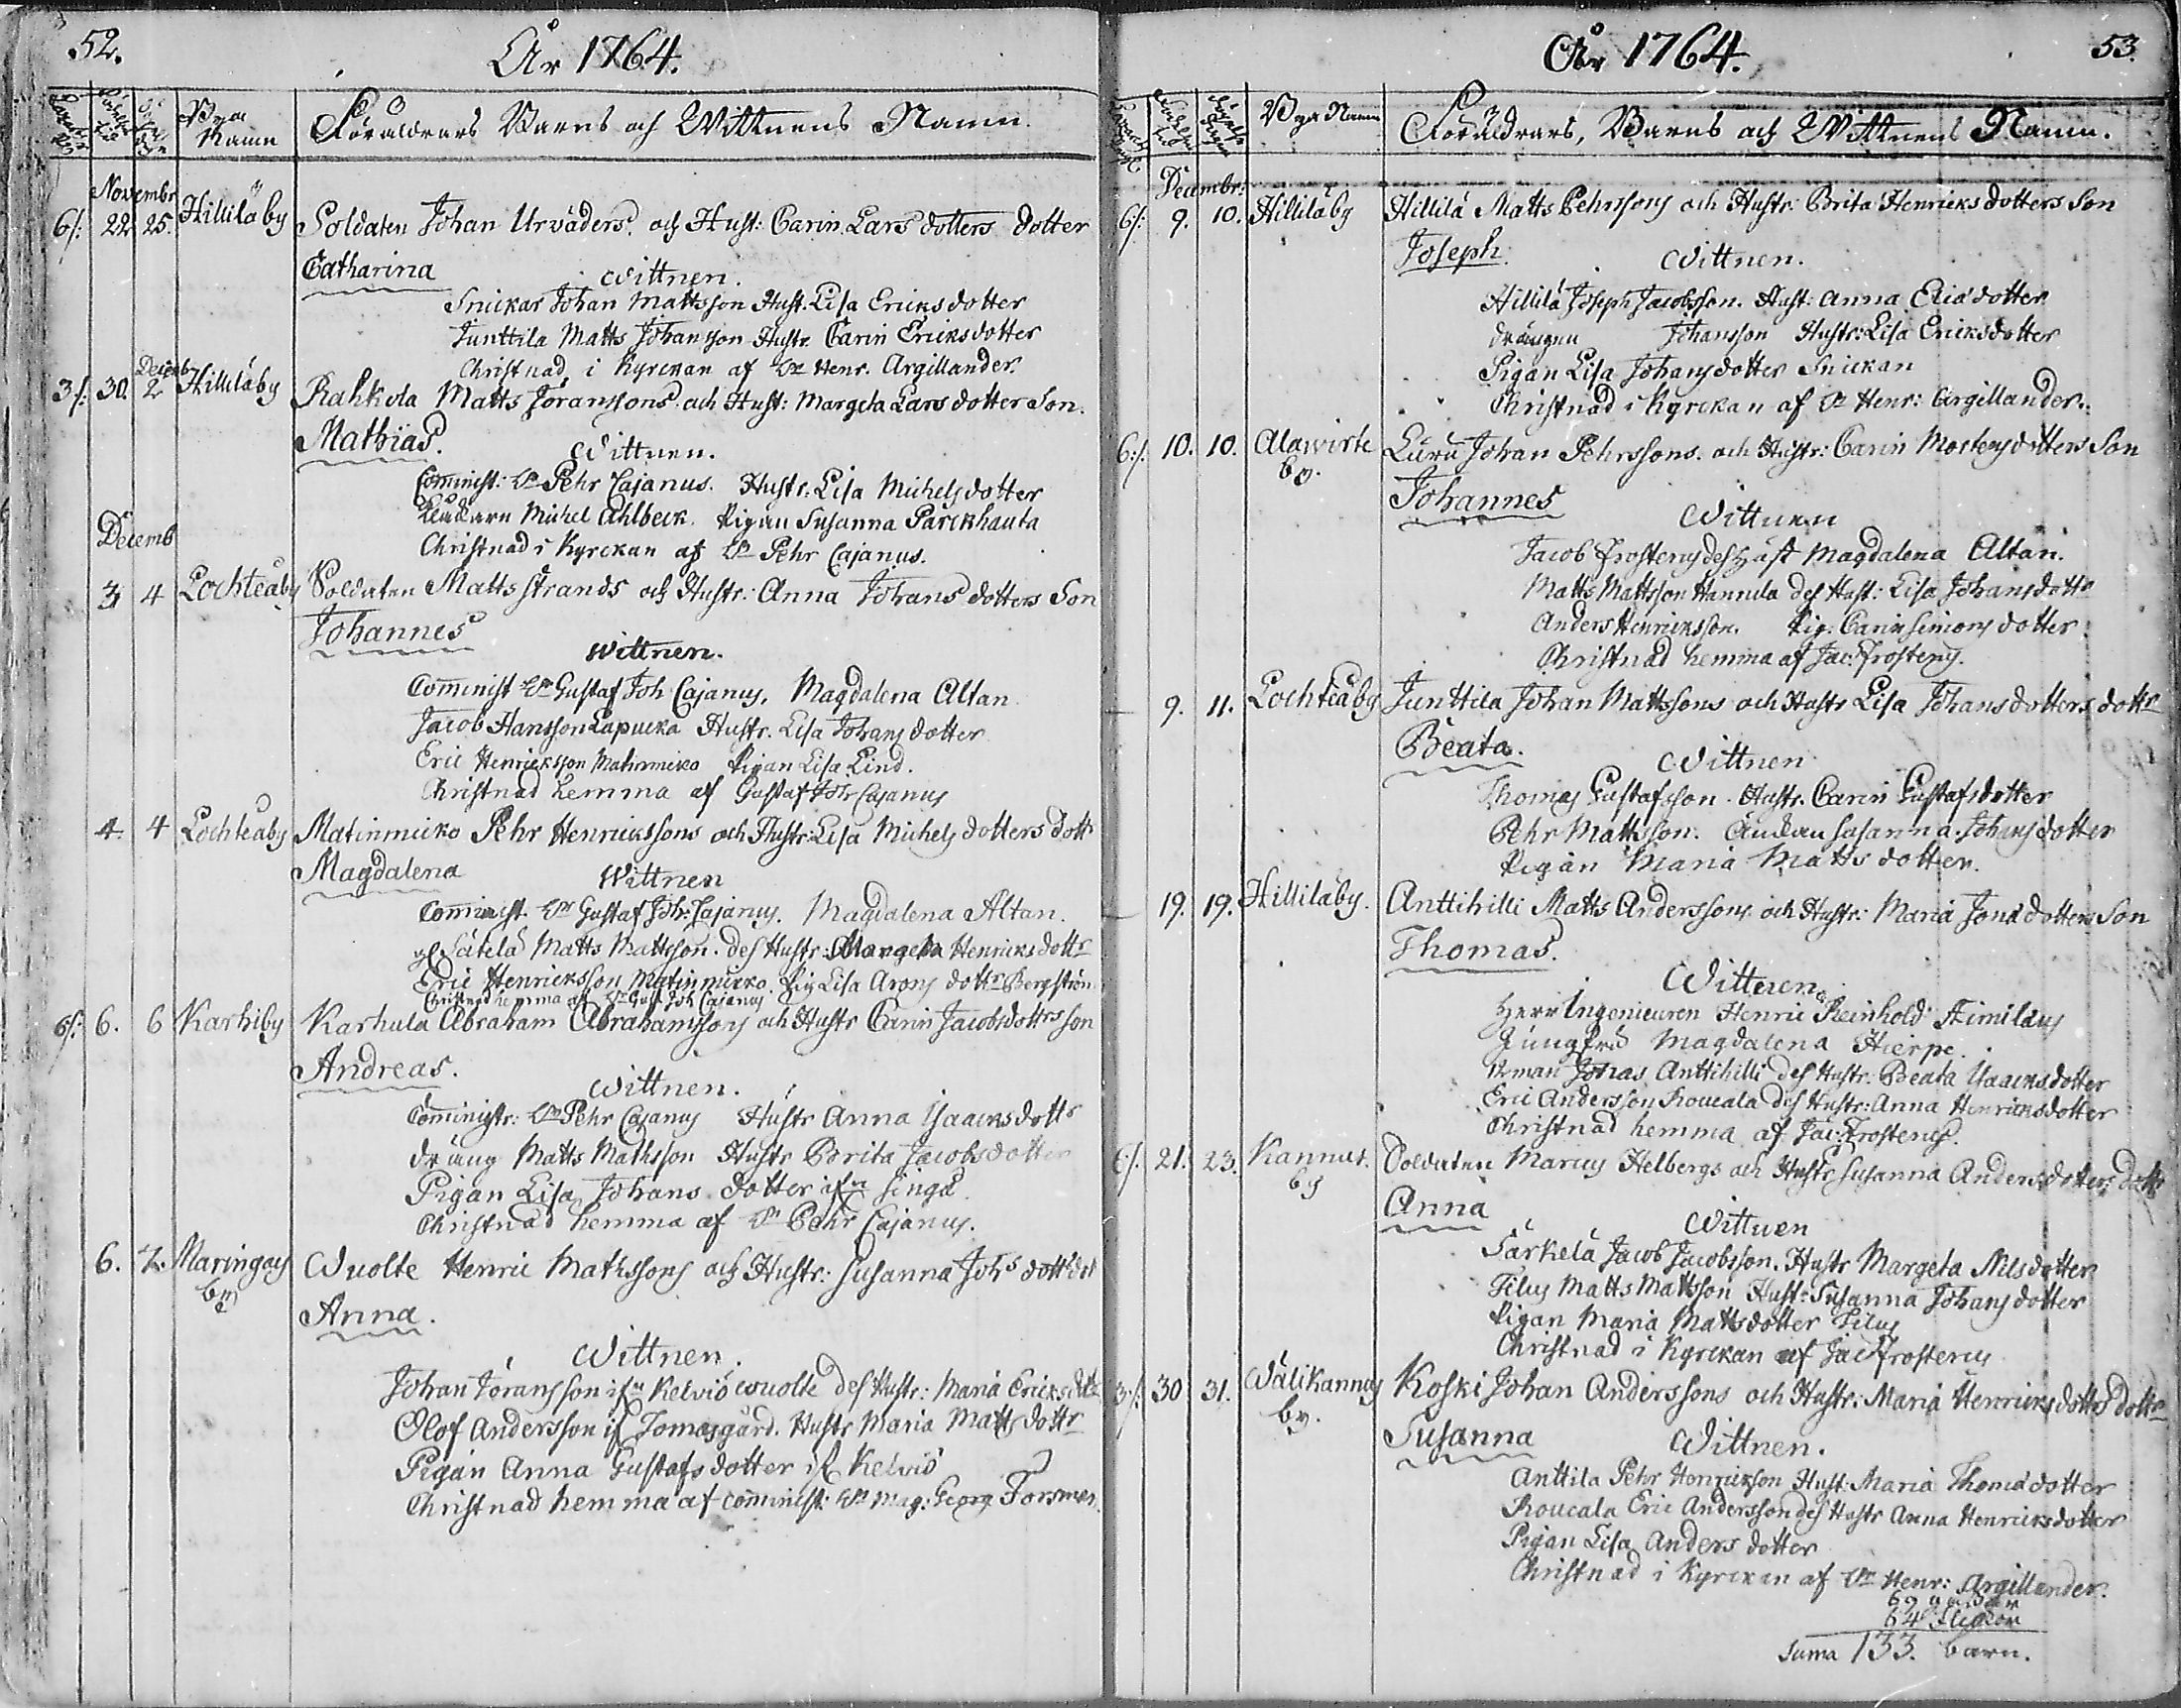 52.
År 1764.
Bya Namn
Föräldrars Barns och Wittnens Namn.
Novembr
6/: 22 25. Hilliläby Soldaten Johan Urväders. och Hust: Carin Lars dotters dotter
Catharina
Wittnen.
Snickar Johan Mattsson Hust. Lisa Ericks dotter
Junttila Matts Johansson Hustr. Carin Ericksdotter
Christnad i Kyrckan af Hr Henr. Argillander.
Decemb
3/: 30. 2 Hilliläby Rahkola Matts Jöranssons och Hust: Margeta Lars dotter Son.
Mathias.
Wittnen.
Comminist: Hr Pehr Cajanus. Hustr. Lisa Michelsdotter
Michel Ahlbeck. Pigan Susanna Parckhauta
Christnad i Kyrckan af Hr Pehr Cajanus.
Decemb
3 4 Lochteåby Soldaten Matts Strands och Hustr: Anna Johans dotters Son
Johannes
Wittnen.
Comminist Hr Gustaf Joh Cajanus. Magdalena Altan
Jacob Hansson Lapucka Hustr. Lisa Johans dotter
Eric Henricksson Pigan Lisa Lind.
Christnad hemma af Gustaf Joh Cajanus
4. 4 Lochteåby Matinmicko Pehr Henrickssons och Hustr: Lisa Michels dotters dottr
Magdalena
Wittnen
Comminist. Hr Gustaf Joh: Cajanus. Magdalena Altan.
Matts Mattsson. des Hustr: Margeta Henricks dottr
Eric Henricksson Matinmicko. Pig Lisa Arons dottr Bergström
Christnad hemma af Hr Gust Joh Cajanus
6/: 6. 6 Karhiby Karhula Abraham Abrahamssons och Hustr Carin Jacobsdottrs son
Andreas.
Wittnen.
Comministr: Hr Pehr Cajanus Hustr Anna Isaacksdottr
dräng Matts Mathsson Hustr Brita Jacobsdotter
Pigan Lisa Johans dotter
Christnad hemma af Hr Pehr Cajanus.
6. 7. Maringais by Wuolte Henric Mathssons och Hustr: Susanna Johs dottrs dot
Anna.
Wittnen.
Johan Jöransson ifrn Kelviö Wuolte des Hustr: Maria Ericksdottr
Olof Andersson if Jomasgård. Hustr Maria Matts dottr
Pigan Anna Gustafs dotter if Kelviö
Christnad hemma af Comminist: Hr Mag: Georg Forsmen.
År 1764.
53
Bya Namn
Föräldrars, Barns och Wittnens Namn.
Decembr:
6/: 9. 10. Hilliläby Hillilä Matts Pehrssons och Hustr: Brita Henricks dotters Son
Joseph.
Wittnen.
Hillilä Joseph Jacobsson. Hust: Anna Eliædotter
drängen Johansson Hustr: Lisa Ericksdotter
Pigan Lisa Johans dotter Snickan
Christnad i Kyrckan af Hr Henr: Argillander.
6:/: 10. 10. Alawirte by. Luru Johan Pehrssons. och Hustr: Carin Mortens dotters Son
Johannes
Wittnen
Jacob Frosterus Magdalena Altan.
Matts Mattsson Hannula des Hust: Lisa Johansdottr
Anders Henricksson. Pig: Carin Simons dotter
Christnad hemma af Jac: Frosterus.
9. 11. Lochteåby Junttila Johan Mattssons och Hustr Lisa Johansdotters dottr
Beata.
Wittnen
Thomas Gustafsson. Hustr. Carin Gustafsdotter
Pehr Mattsson. Änckan Susanna Johansdotter
Pigan Maria Matts dotter.
19. 19. Hilliläby. Anttihilli Matts Anderssons och Hustr: Maria Jonædotters Son
Thomas.
Wittnen
Herr Ingenieuren Henric Reinhold Himilæus
Jungfru Magdalena Hierpe.
Jonas Anttihilli des Hustr: Beata Isaacksdotter
Eric Andersson Roucala des Hustr: Anna Henricksdotter
Christnad hemma af Jac: Frosterus.
6/: 21. 23. Kannus. by Soldaten Marcus Helbergs och Hustr Susanna Andersdotters dottr
Anna
Wittnen
Särkelä Jacob Jacobsson. Hustr Margeta Nilsdotter
Filus Matts Mattsson Hust: Susanna Johans dotter
Pigan Maria Mattsdotter Filus
Christnad i Kyrckan af Jac Frosterus
3/: 30 31. Wälikannus by. Koski Johan Anderssons och Hustr: Maria Henricksdotters dottr
Susanna
Wittnen.
Anttila Pehr Henricksson Hust: Maria Thomædotter
Roucala Eric Andersson des Hustr Anna Henricksdotter
Pigan Lisa Anders dotter
Christnad i Kyrckan af Hr Henr: Argillander.
69 gossar
64 flickor
Suma 133. barn.